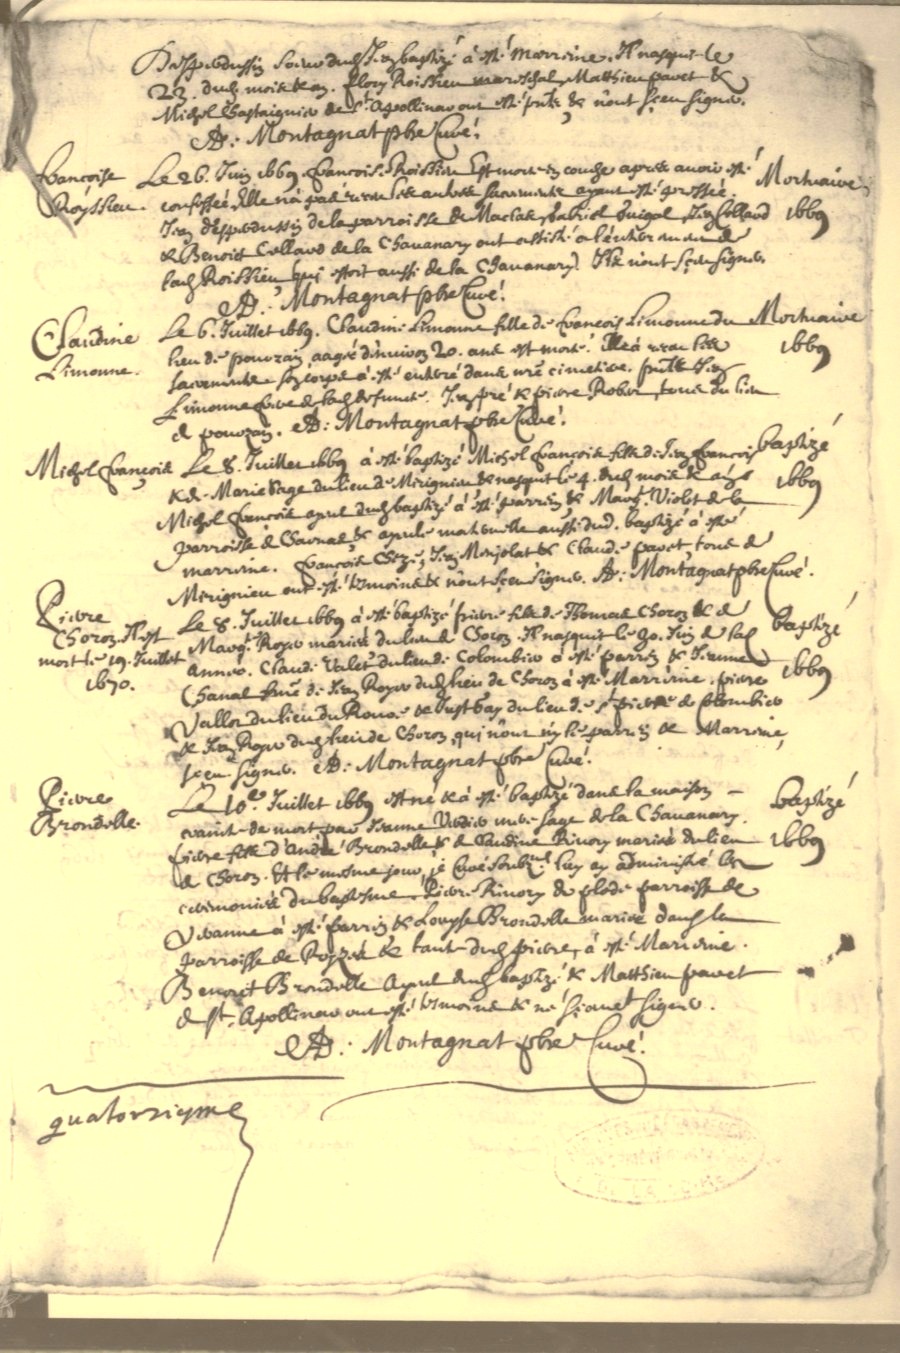 baptizé à esté Marrine. Il nasquit le
23. dud. mois & an. Flory Roissieu mareschal, Matthieu pavet &
Michel Chastaignier de St. Apollinar ont esté pnts & n'ont sçeu signer.
A: Montagnat pbre Curé.
Françoise
Royssieu.
Mortuaire
1669
Le 26. Juin 1669 Françoise Roissieu est morte en couche apres avoir esté
confessée, Elle n'a pas receu les autres sacrements ayant esté pressée.
Jean d'espeudussin de la parroisse de Maclas, Gabriel Guigal, Jean Collaud
& Benoict Collaud de la Chavanary ont assisté a l'enterrement de
lad. Roissieu qui estoit aussi de la Chavanary. Ils n'ont sçeu signer.
A: Montagnat pbre Curé.
Claudine
Limonne.
Mortuaire
1669
Le 6. Juillet 1669. Claudine Limonne fille de François Limonne du
lieu de pouzain aagée d'environ 20. ans est morte. Elle a receu les
sacrements son corps à esté enterré dans nre cimetiere. pnts Jean
Limonne frere de lad. defuncte. Jean pré & pierre Robert tous du lieu
de pouzain. A: Montagnat pbre Curé.
Michel François
baptizé
1669
Le 8. Juillet 1669 à esté baptizé Michel François fils de Jean François
& de Marie Sage du lieu de Merignieu & nasquit le 4. dud. mois & an
Michel François ayeul dud. baptizé à esté parrein & Marg. Violet de la
parroisse de Charnas & ayeule maternelle aussi dud. baptizé à esté
marrine. François Chize, Jean Monjolat & Claude pavet tous de
Merignieu ont esté tesmoins & n'ont sçeu signer. A: Montagnat pbre Curé.
Pierre
Choron. Il est
mort le 19. Juillet
1670.
baptizé
1669
Le 8. Juillet 1669 à esté baptizé pierre fils de Thomas Choron & de
Marg. Royer mariés du lieu de Choron. Il nasquit le 30. Juin de lad.
année. Claude Valet du lieu de Colombier à esté parrein & Jeanne
Chanal femme de Jean Royer dud. lieu de Choron à esté Marrine. pierre
Vallot du lieu du & Just Gay du lieu de St pierre de Colombier
& Jean Royer dud. lieu de Choron qui n'ont ny le parrein & Marrine
sçeu signer. A: Montagnat pbre Curé.
Pierre
Brondelle.
baptizé
1669
Le 10e. Juillet 1669 est né & à esté baptizé dans la maison
crainte de mort par Jeanne Verdier mere sage de la Chavanary.
pierre fils d'André Brondelle & de Claudine Rivory mariés du lieu
de Choron. Et le mesme jour je Curé soubz.né luy ay administré les
ceremonies du baptesme. Pierre Rivory de plode parroisse de
Veranne à esté parrein & Louyse Brondelle mariée dans la
parroisse de & tante dud. pierre, à esté Marrine.
Benoict Brondelle Ayeul dud. baptizé & Matthieu pavet
de St. Apollinar ont esté tesmoins & ne sçavet signer.
A: Montagnat pbre Curé.
quatorziyme